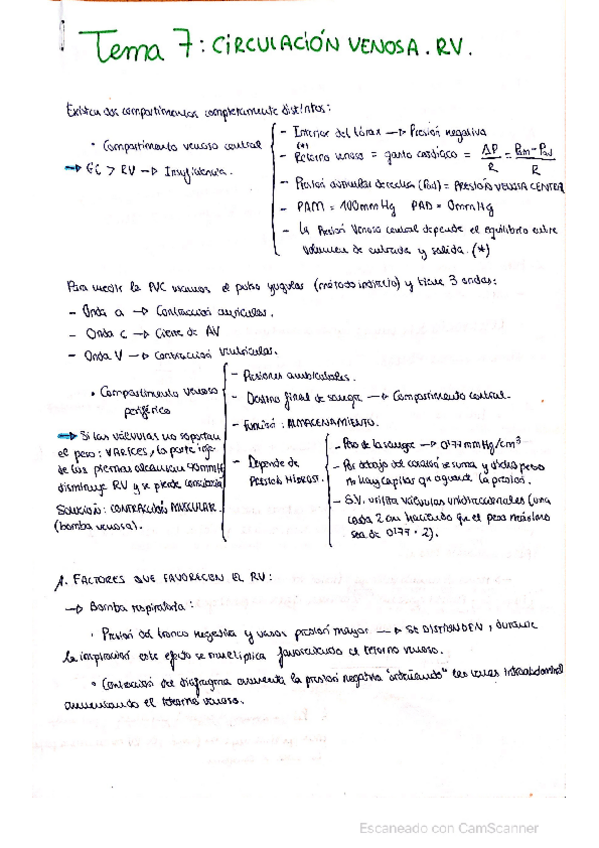 Tema 7: CIRCULACIÓN VENOSA. RV.
Existen dos compartimentos completamente distintos:
• Compartimento venoso central
→ GC > RV → Insuficiencia.
- Interior del tórax → Presión negativa
(*)
- Retorno venoso = gasto cardiaco = ΔP/R = Pam-Pad/R
- Presión auricular derecha (Pad) = PRESIÓN VENOSA CENTRAL
- PAM = 100mmHg PAD = 0mmHg
- La Presión Venosa central depende el equilibrio entre
volumen de entrada y salida. (*)
Para medir la PVC usamos el pulso yugular (método indirecto) y tiene 3 ondas:
- Onda a → Contracción auricular.
- Onda c → Cierre de AV
- Onda V → contracción ventricular.
• Compartimento venoso
periférico
→ Si las válvulas no soportan
el peso: VARICES, la parte infe-
de las piernas alcanzan 90mmHg
disminuye RV y se pierde
Solución: CONTRACCIÓN MUSCULAR.
(bomba venosa).
- Presiones ambientales.
- Destino final de sangre → Compartimento central.
- Función: ALMACENAMIENTO.
- Depende de
Presión Hidrost.
- Peso de la sangre → 0'77mmHg/cm³
- Por debajo del corazón se suma y dicho peso
no hay capilar qe aguante la presión.
- S.V. utiliza válvulas unidireccionales (una
cada 2 cm haciendo que el peso
sea de 0'77 · 2).
1. FACTORES QUE FAVORECEN EL RV:
→ Bomba respiratoria:
• Presión del tronco negativa y vasos presión mayor → SE DISTIENDEN, durante
la inspiración este efecto se multiplica favoreciendo el retorno venoso.
• Contracción del diafragma aumenta la presión negativa las venas intraabdominal
aumentando el retorno venoso.
Escaneado con CamScanner